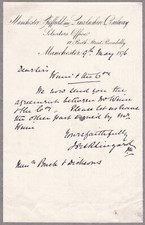 Manchester Sheffield and Lincolnshire Railway
Solicitors Office
Manchester 9th May 1876
Dear Sirs
We now send you the
agreement between Mr Wenn
& the Co. Please let us have
the other part signed by Mr
Wenn
Yours faithfully